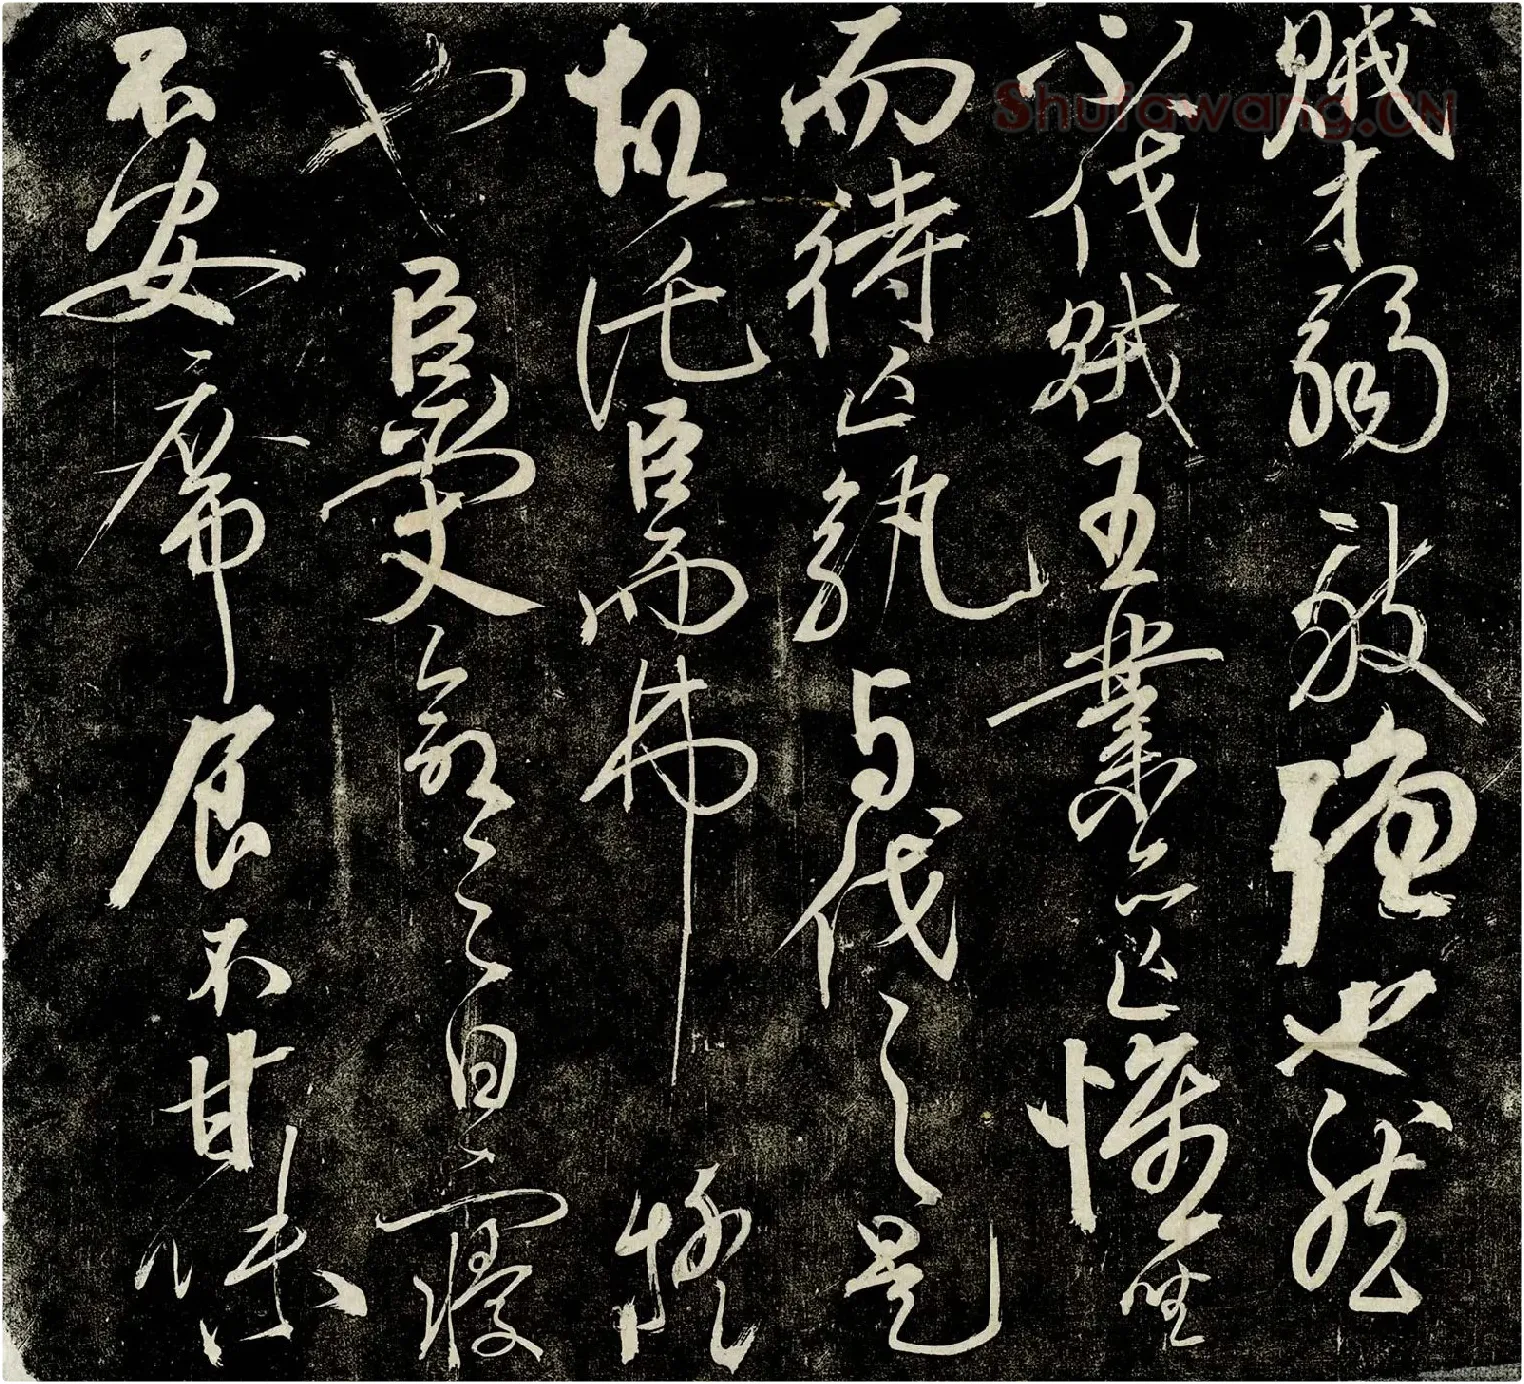 賊才弱敵強也然
不伐賊王業亦亡惟坐
而待亡孰与伐之是
故託臣而弗疑
也臣受命之日寢
不安席食不甘味
Shufawang.CN